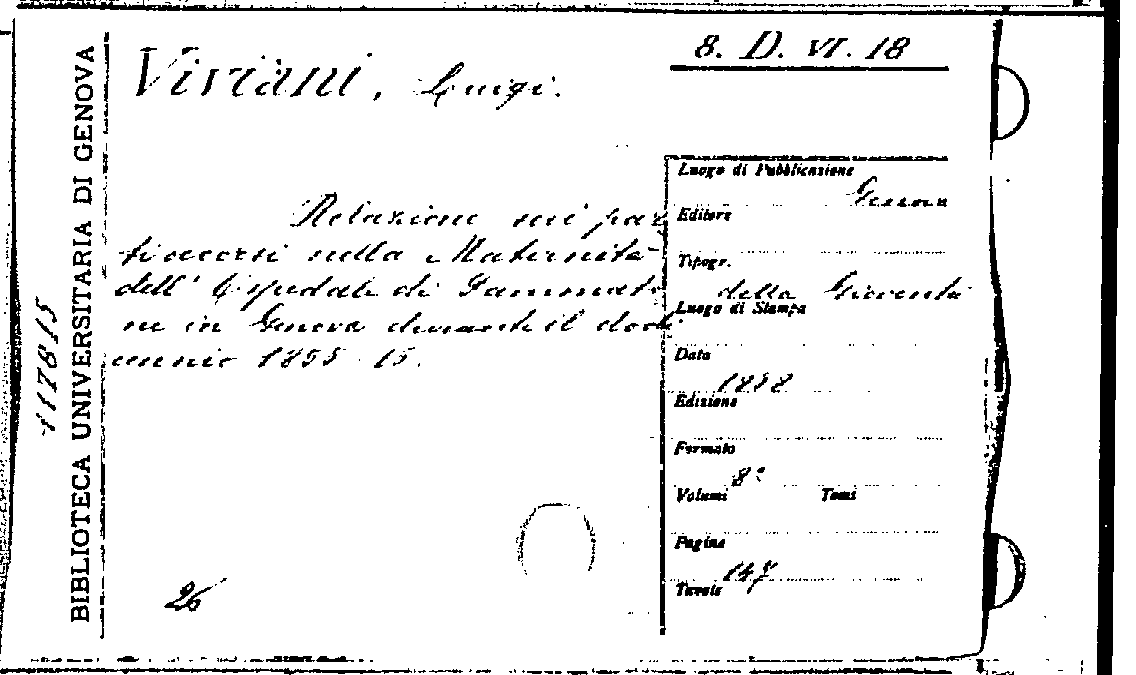 8. D. VI. 18
Viviani, Luigi.
BIBLIOTECA UNIVERSITARIA DI GENOVA
117815
Relazione sui par
ti occorsi nella Maternità
dell' Ospedale di Pammato
ne in Genova durante il dod
cennio 1855 - 15.
26
Luogo di Pubblicazione
Genova
Editore
Tipogr.
della Gioventù
Luogo di Stampa
Data
Edizione
Formato
8°
Volumi Tomi
Pagine
147
Tavole